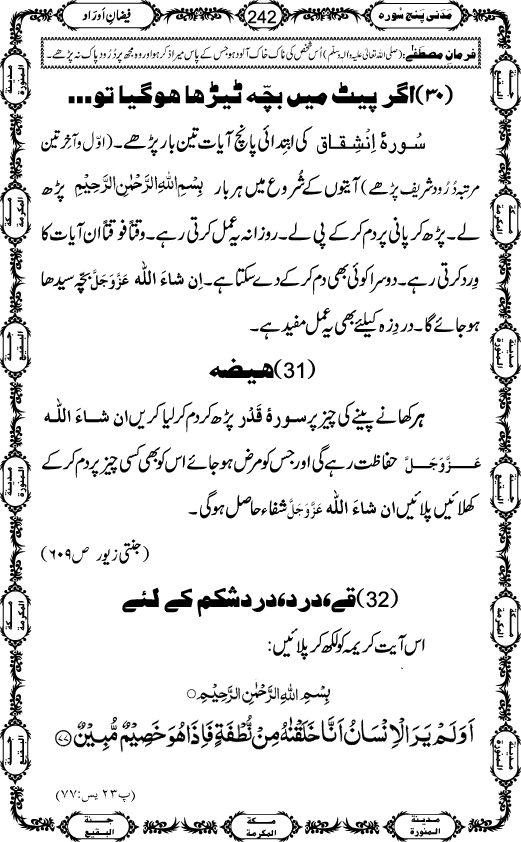 مَدَنی پنج سُورہ
242
فیضانِ اَوراد
فرمانِ مصطفٰے: (صلی اللہ تعالیٰ علیہ والہ وسلّم) اُس شخص کی ناک خاک آلود ہو جس کے پاس میرا ذکر ہو اور وہ مجھ پر دُرُود پاک نہ پڑھے۔
(۳۰) اگر پیٹ میں بچّہ ٹیڑھا ہوگیا تو...
سُورۂ اِنْشِقاق کی ابتدائی پانچ آیات تین بار پڑھے۔ (اوّل و آخِر تین
مرتبہ دُرُود شریف پڑھے) آیتوں کے شُروع میں ہر بار بِسْمِ اللہِ الرَّحْمٰنِ الرَّحِیْمِ پڑھ
لے۔ پڑھ کر پانی پر دم کر کے پی لے۔ روزانہ یہ عمل کرتی رہے۔ وقتاً فوقتاً ان آیات کا
وِرد کرتی رہے۔ دوسرا کوئی بھی دم کر کے دے سکتا ہے۔ اِن شاءَ اللہ عَزَّوَجَلَّ بچّہ سیدھا
ہو جائے گا۔ دردِ زہ کیلئے بھی یہ عمل مفید ہے۔
(31) ھیضہ
ہر کھانے پینے کی چیز پر سورۂ قَدْر پڑھ کر دم کر لیا کریں ان شاءَ اللہ
عَزَّوَجَلَّ حفاظت رہے گی اور جس کو مرض ہو جائے اس کو بھی کسی چیز پر دم کر کے
کھلائیں پلائیں ان شاءَ اللہ عَزَّوَجَلَّ شفاء حاصل ہوگی۔
(جنتی زیور ص۶۰۹)
(32) قے، درد، دردِ شکم کے لئے
اس آیت کریمہ کو لکھ کر پلائیں:
بِسْمِ اللہِ الرَّحْمٰنِ الرَّحِیْمِ ○
اَوَلَمْ یَرَ الْاِنْسَانُ اَنَّا خَلَقْنٰهُ مِنْ نُّطْفَةٍ فَاِذَا هُوَ خَصِیْمٌ مُّبِیْنٌ ﴿۷۷﴾
(پ۲۳ یٰس:۷۷)
مدینة المنورة
مكة المكرمة
جنة البقيع